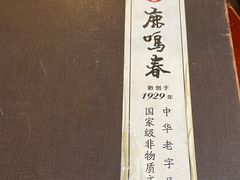 鹿鳴春
始创于
1929年
中华老字
国家级非物质